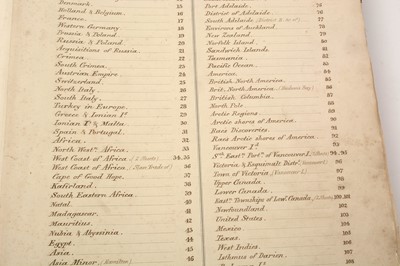 Denmark. 15
Holland & Belgium. 16
France. 17
Western Germany 18
Prussia & Poland 19
Russia & Poland 20
Acquisitions of Russia 21
Crimea. 22
South Crimea. 23
Austrian Empire. 24
Switzerland. 25
North Italy. 26
South Italy. 27
Turkey in Europe. 28
Greece & Ionian Is. 29
Ionian Is. & Malta 30
Spain & Portugal. 31
Africa. 32
North West. Africa. 33
West Coast of Africa 34, 35
West Coast of Africa 36
Cape of Good Hope. 37
Kafirland. 38
South Eastern Africa. 39
Natal. 40
Madagascar. 41
Mauritius. 42
Nubia & Abyssinia 43
Egypt. 44
Asia. 45
Asia Minor 46
Port Adelaide.
District of Adelaide. 76
South Adelaide 77
Environs of Auckland
New Zealand
Norfolk Island
Sandwich Islands
Tasmania
Pacific Ocean
America. 84
British North America. 85
Brit. North America (Hudsons Bay) 86
British Columbia 87
North Pole 88
Arctic Regions 89
Arctic shores of America 90
Raes Discoveries 91
Raes Arctic shores of America 92
Vancouver Id. 93
Sth. East. Port. of Vancouver I. 94, 95
Victoria & Esquimalt Dists. 96
Town of Victoria 97
Upper Canada 98
Lower Canada. 99
East. Townships of Lowr. Canada, 100, 101
Newfoundland 102
United States. 103
Mexico 104
Texas. 105
West Indies 106
Isthmus of Darien. 107